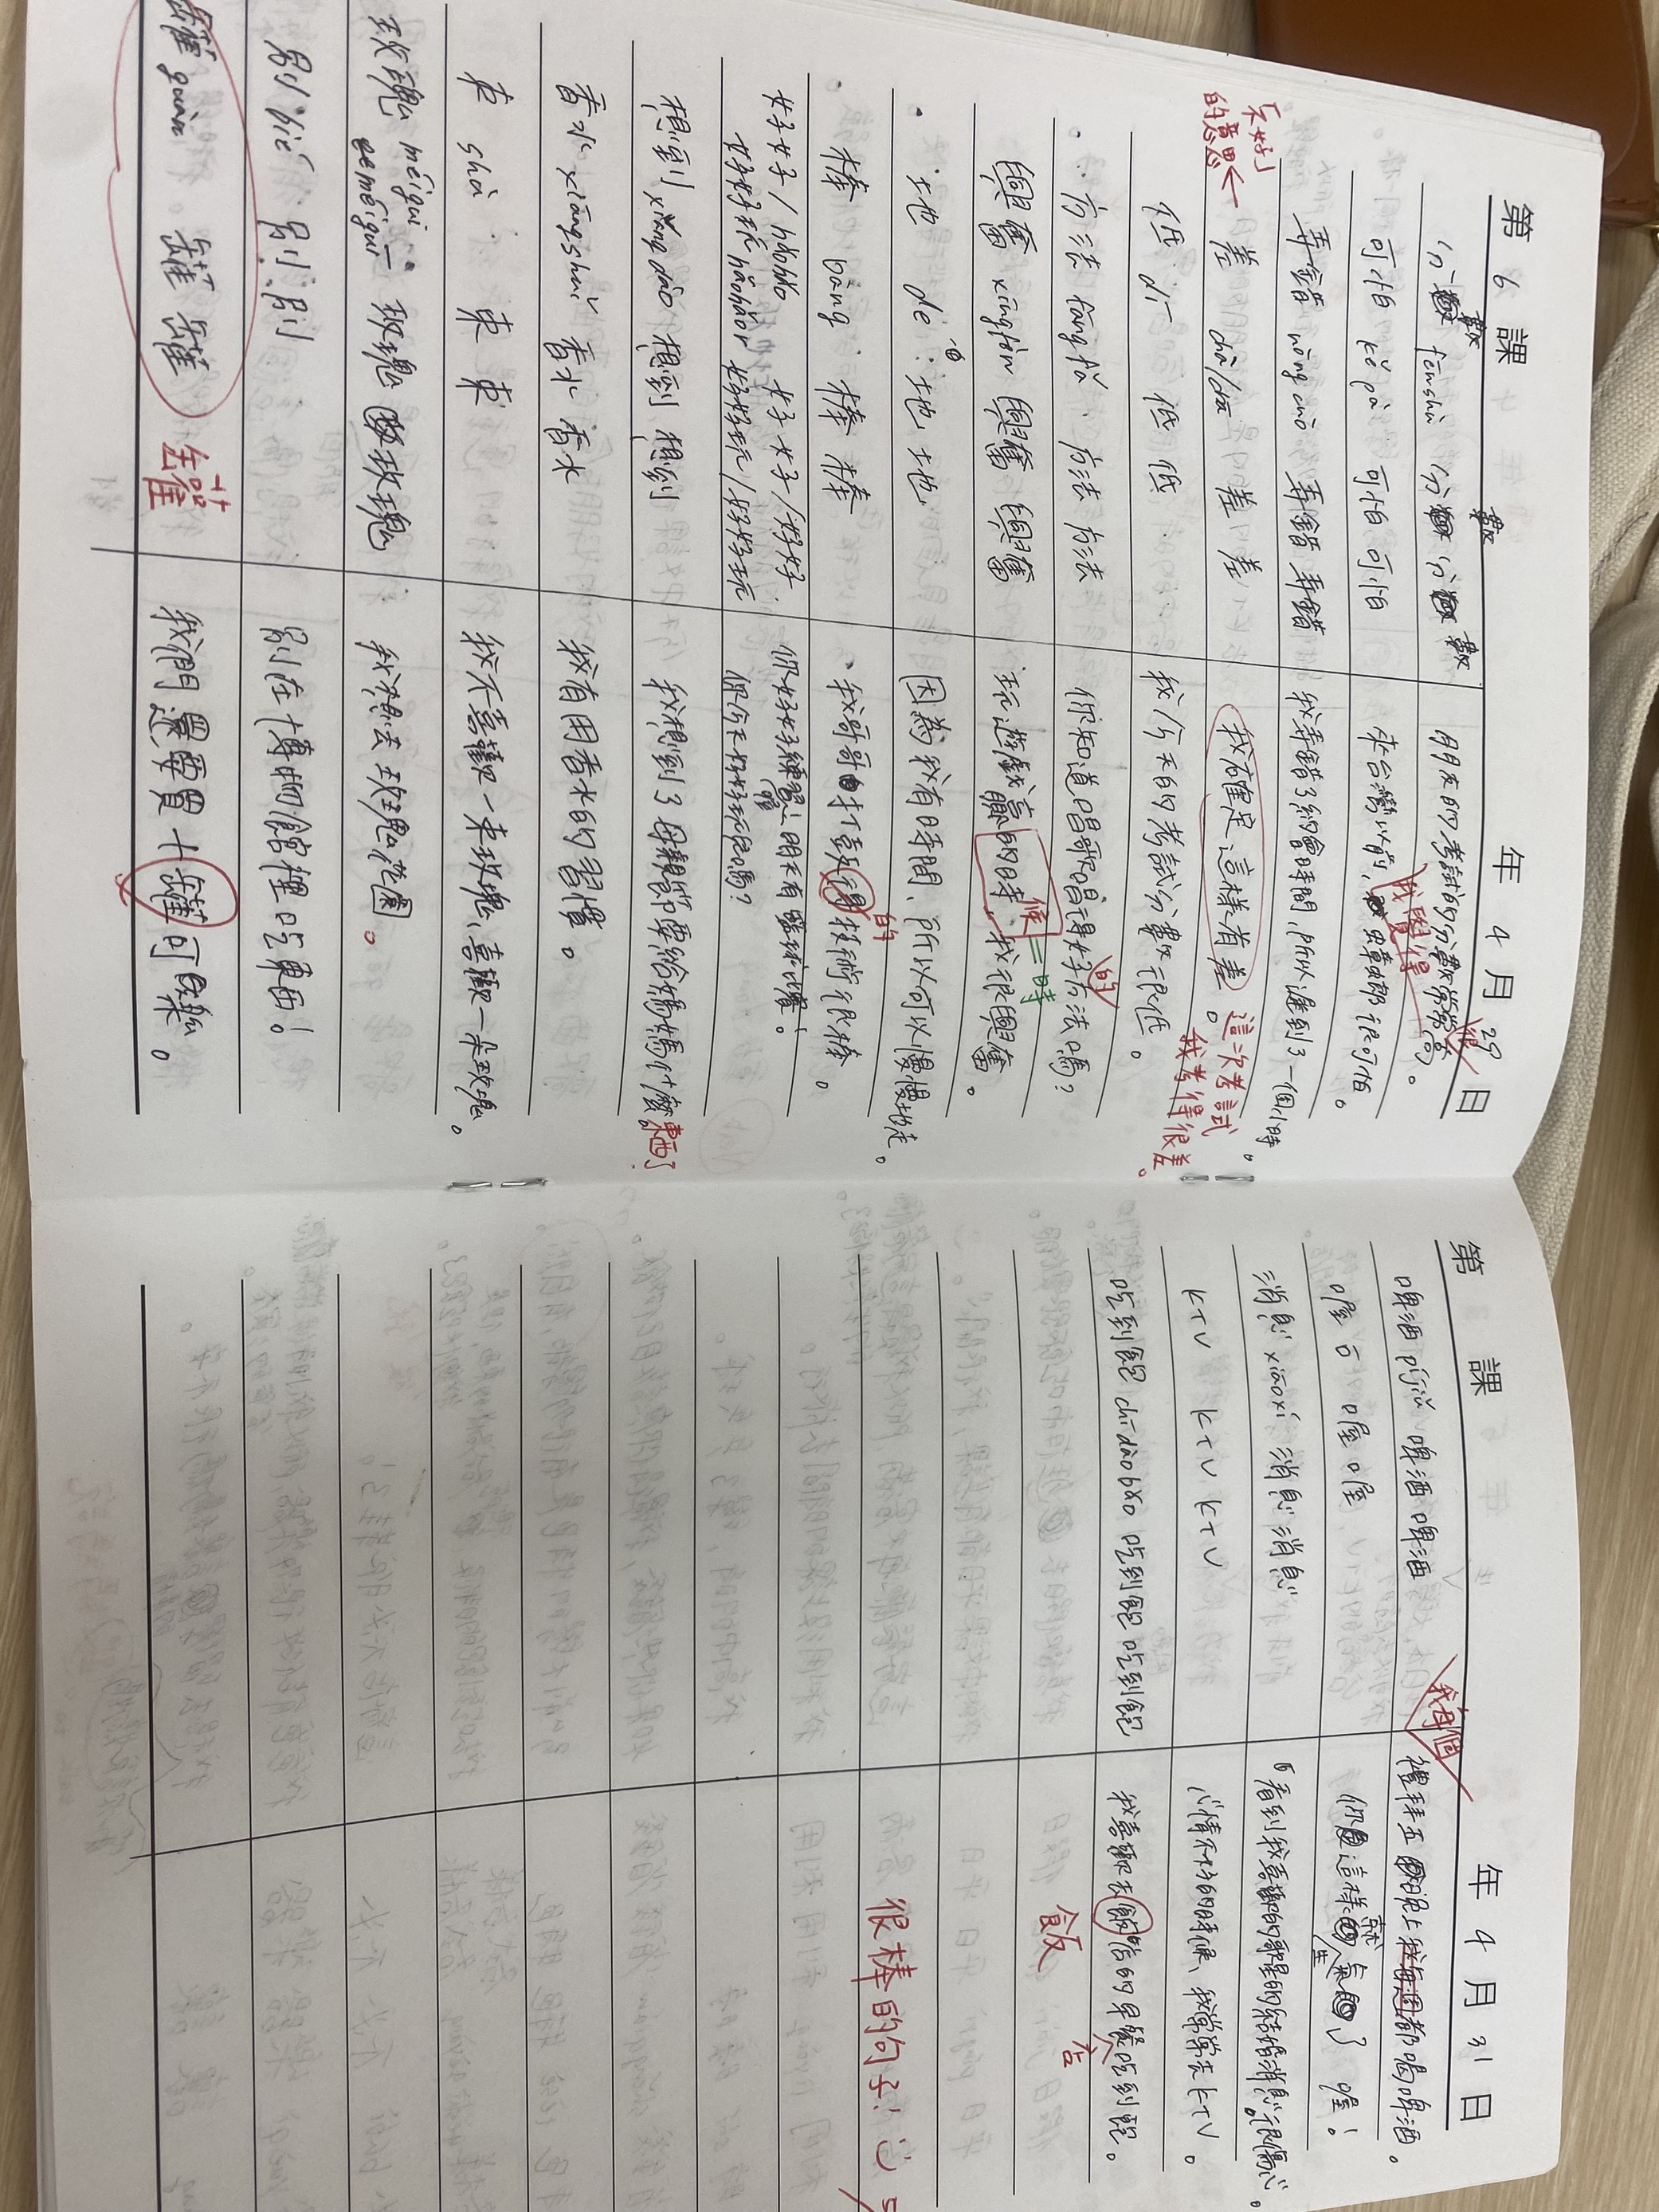 第 6 課 年 4 月 29 日
分數 fēnshù 分數 分數 朋友的考試的分數常常很高。
可怕 kěpà 可怕 可怕 來台灣以前,我覺得蟑螂很可怕。
弄錯 nòngcuò 弄錯 弄錯 我弄錯了約會時間,所以遲到了一個小時。
不好的意思← 差 chā/ 差 差 我確定這樣有差。 這次考試我考得很差。
低 dī 低 低 我今天的考試分數很低。
方法 fāngfǎ 方法 方法 你知道唱歌唱得好的方法嗎?
興奮 xīngfèn 興奮 興奮 玩遊戲贏的時候=時,我很興奮。
地 de 地 地 因為我有時間,所以可以慢慢地走。
棒 bàng 棒 棒 我哥哥打球得的技術很棒。
好好/hǎohǎo 好好/好好 你好好練習,明天有籃球比賽!
好好玩 hǎohǎo 好好玩/好好玩 你今天好好玩嗎?
想到 xiǎngdào 想到 想到 我想到了母親節要給媽媽什麼東西了
香水 xiāngshuǐ 香水 香水 我有用香水的習慣。
束 shù 束 束 我不喜歡一束玫瑰,喜歡一朵玫瑰。
玫瑰 méiguī 玫瑰 玫瑰 我想去玫瑰花園。
別 bié 別 別 別在博物館裡吃東西!
罐 guàn 罐 罐 罐 我們還要買十罐可樂。
第 課 年 4 月 31 日
啤酒 píjiǔ 啤酒 啤酒 我每個禮拜五晚上我每週都喝啤酒。
喔 喔 喔 你這樣就生氣了喔!
消息 xiāoxí 消息 消息 看到我喜歡的歌星的結婚消息,很傷心。
KTV KTV KTV 心情不好的時候,我常常去KTV。
吃到飽 chīdàobǎo 吃到飽 吃到飽 我喜歡去飯店的早餐吃到飽。
飯 店
很棒的句子!